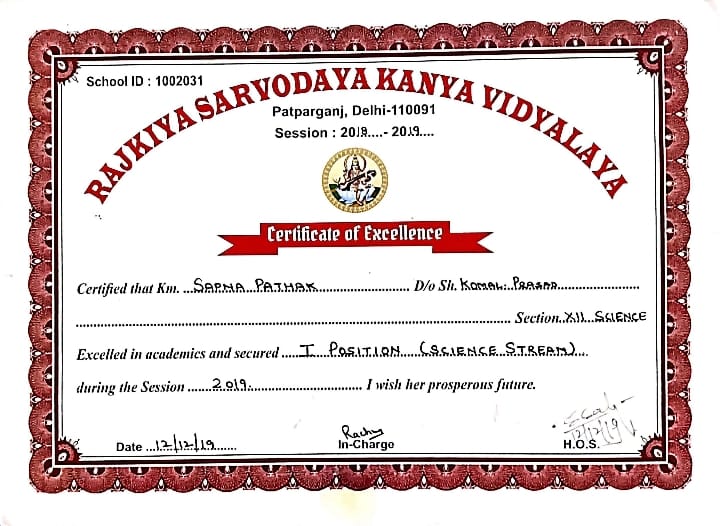 School ID : 1002031
RAJKIYA SARVODAYA KANYA VIDYALAYA
Patparganj, Delhi-110091
Session : 2018....- 2019....
Certificate of Excellence
Certified that Km. ...SAPNA PATHAK........................ D/o Sh. KOMAL PRASAD......................
Section. XII SCIENCE
Excelled in academics and secured .....I POSITION....(SCIENCE STREAM)...
during the Session ......2019............................. I wish her prosperous future.
12/12/19
Date ...12/12/19.......
In-Charge
H.O.S.